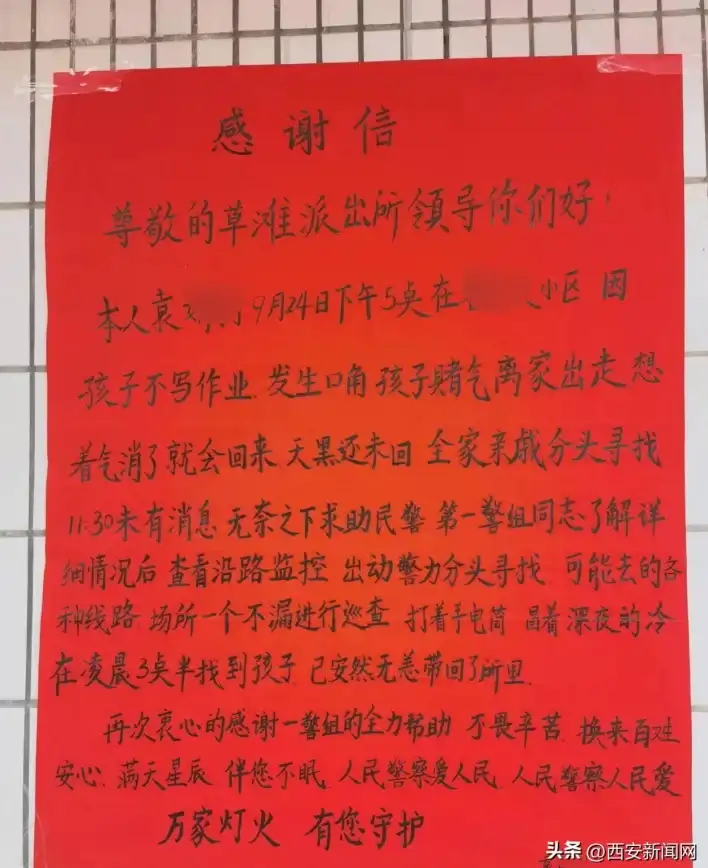 感谢信
尊敬的草滩派出所领导你们好！
本人袁 9月24日下午5点在 小区 因
孩子不写作业 发生口角 孩子赌气离家出走 想
着气消了就会回来 天黑还未回 全家亲戚分头寻找
11:30未有消息 无奈之下求助民警 第一警组同志了解详
细情况后 查看沿路监控 出动警力分头寻找 可能去的各
种线路 场所一个不漏进行巡查 打着手电筒 冒着深夜的冷
在凌晨3点半找到孩子 已安然无恙带回了所里
再次衷心的感谢一警组的全力帮助 不畏辛苦 换来百姓
安心 满天星辰 伴您不眠 人民警察爱人民 人民警察人民爱
万家灯火 有您守护
头条 @西安新闻网